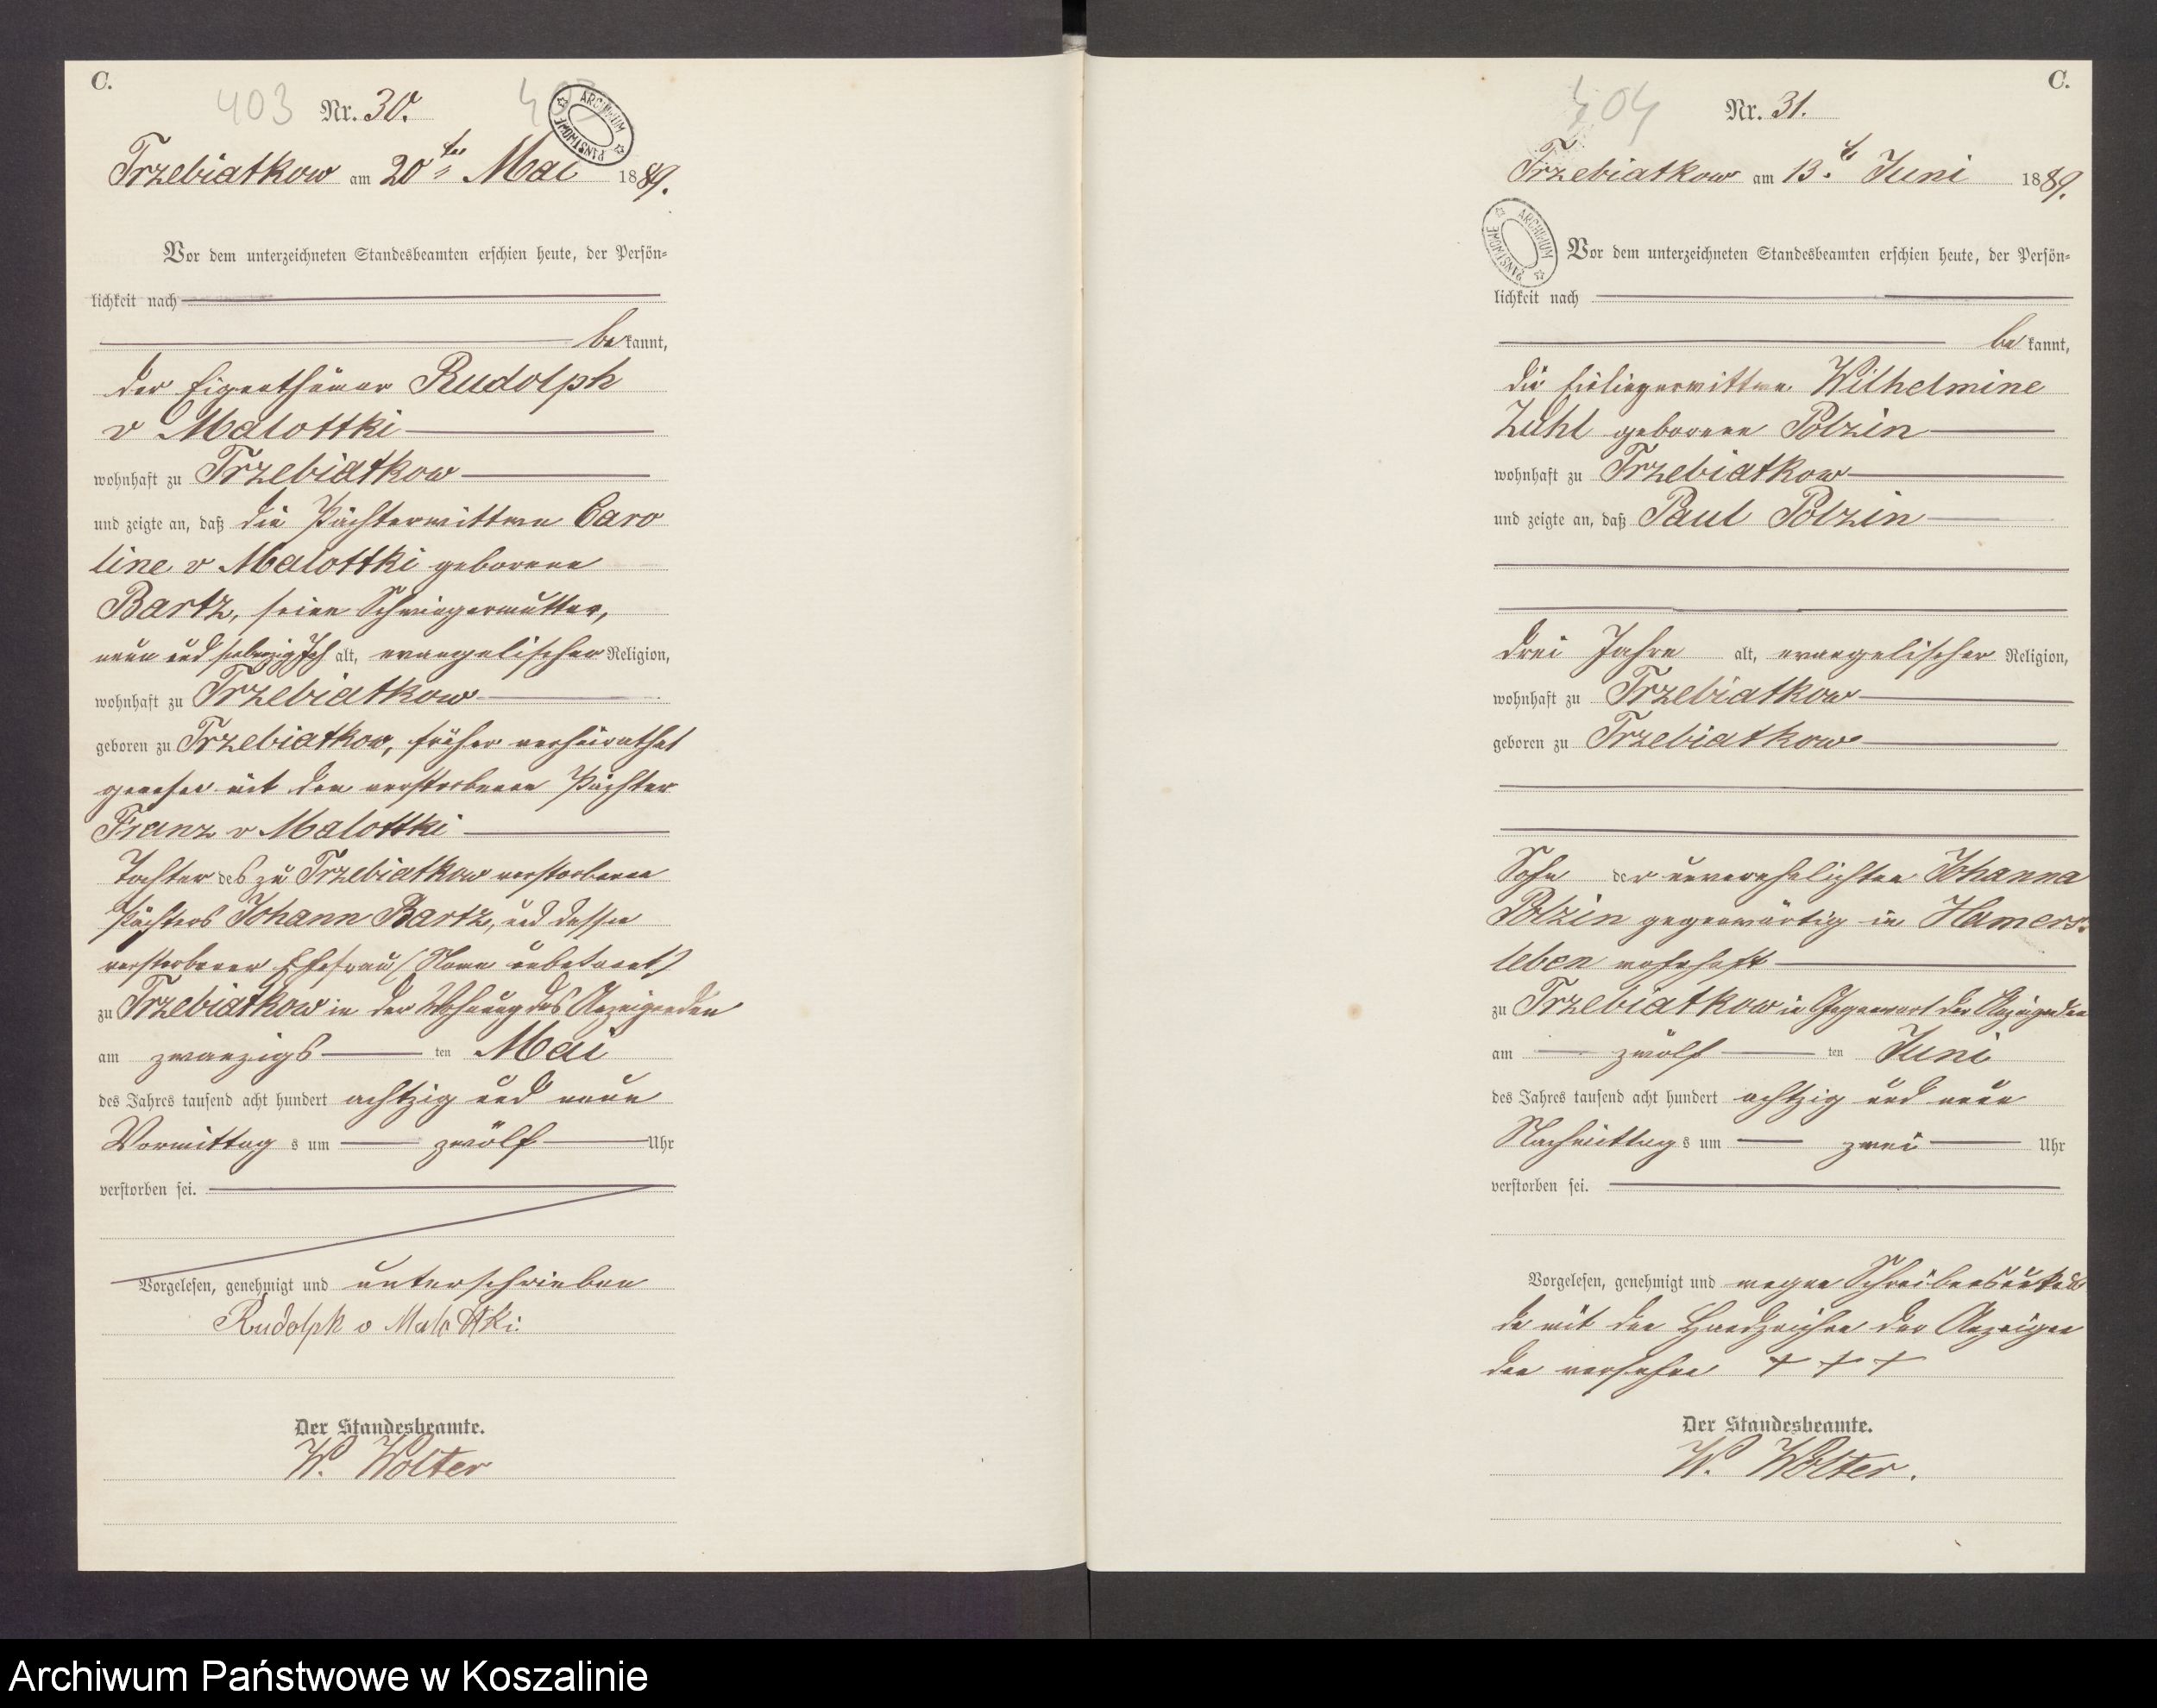 C.
403
Nr. 30.
ARCHIWUM PAŃSTWOWE
Trzebiatkow am 20ten Mai 1889.
Vor dem unterzeichneten Standesbeamten erschien heute, der Persön-
lichkeit nach
bekannt,
der Eigenthümer Rudolph
v Malottki
wohnhaft zu Trzebiatkow
und zeigte an, daß die Pächterwittwe Caro
line v Malottki geborene
Bartz, seine Schwiegermutter,
neun und siebenzig Jah alt, evangelischer Religion,
wohnhaft zu Trzebiatkow
geboren zu Trzebiatkow, früher verheirathet
gewesen mit dem verstorbenen Pächter
Franz v Malottki
Tochter des zu Trzebiatkow verstorbenen
Pächters Johann Bartz, und dessen
verstorbener Ehefrau (Name unbekannt)
zu Trzebiatkow in der Wohnung des Anzeigenden
am zwanzigsten Mai
des Jahres tausend acht hundert achtzig und neun
Vormittags um zwölf Uhr
verstorben sei.
Vorgelesen, genehmigt und unterschrieben
Rudolph v Malottki
Der Standesbeamte.
W. Wolter
C.
404
Nr. 31.
Trzebiatkow am 13.t Juni 1889.
ARCHIWUM PAŃSTWOWE
Vor dem unterzeichneten Standesbeamten erschien heute, der Persön-
lichkeit nach
bekannt,
die Einliegerwittwe Wilhelmine
Zuhl geborene Polzin
wohnhaft zu Trzebiatkow
und zeigte an, daß Paul Polzin
drei Jahre alt, evangelischer Religion,
wohnhaft zu Trzebiatkow
geboren zu Trzebiatkow
Sohn der unverehelichten Johanna
Polzin gegenwärtig in Hamers-
leben wohnhaft
zu Trzebiatkow in Gegenwart der Anzeigenden
am zwölften Juni
des Jahres tausend acht hundert achtzig und neun
Nachmittags um zwei Uhr
verstorben sei.
Vorgelesen, genehmigt und wegen Schreibensunkun
de mit den Handzeichen der Anzeigen
den versehen + + +
Der Standesbeamte.
W. Wolter.
Archiwum Państwowe w Koszalinie